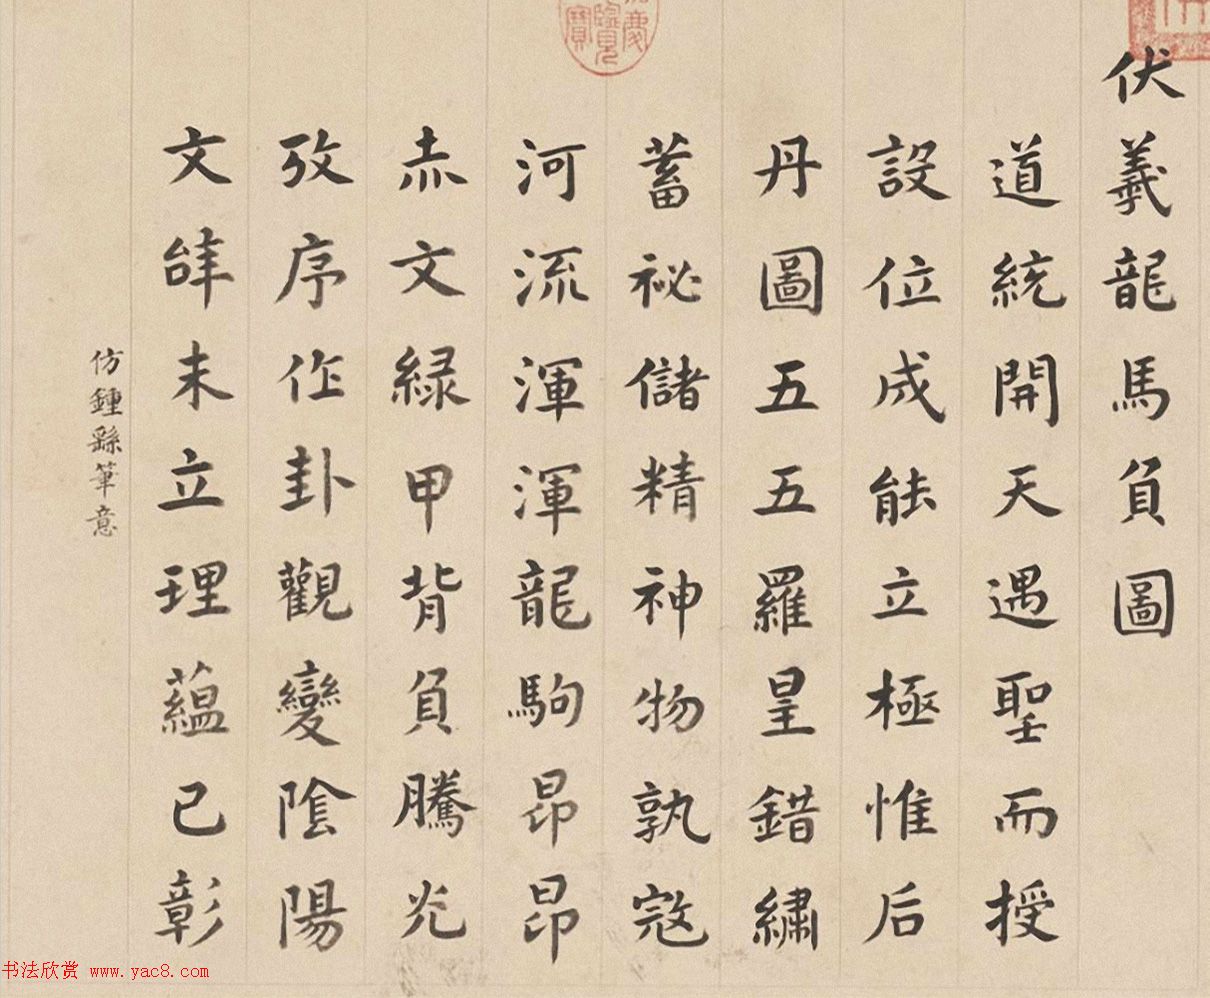 伏羲龍馬負圖
道統開天遇聖而授
設位成能立極惟后
丹圖五五羅皇錯繡
蓄祕儲精神物孰寇
河流渾渾龍駒昂昂
赤文綠甲背負騰光
攷序作卦觀變陰陽
文字未立理蘊已彰
仿鍾繇筆意
慶
覽
寶
书法欣赏 www.yac8.com